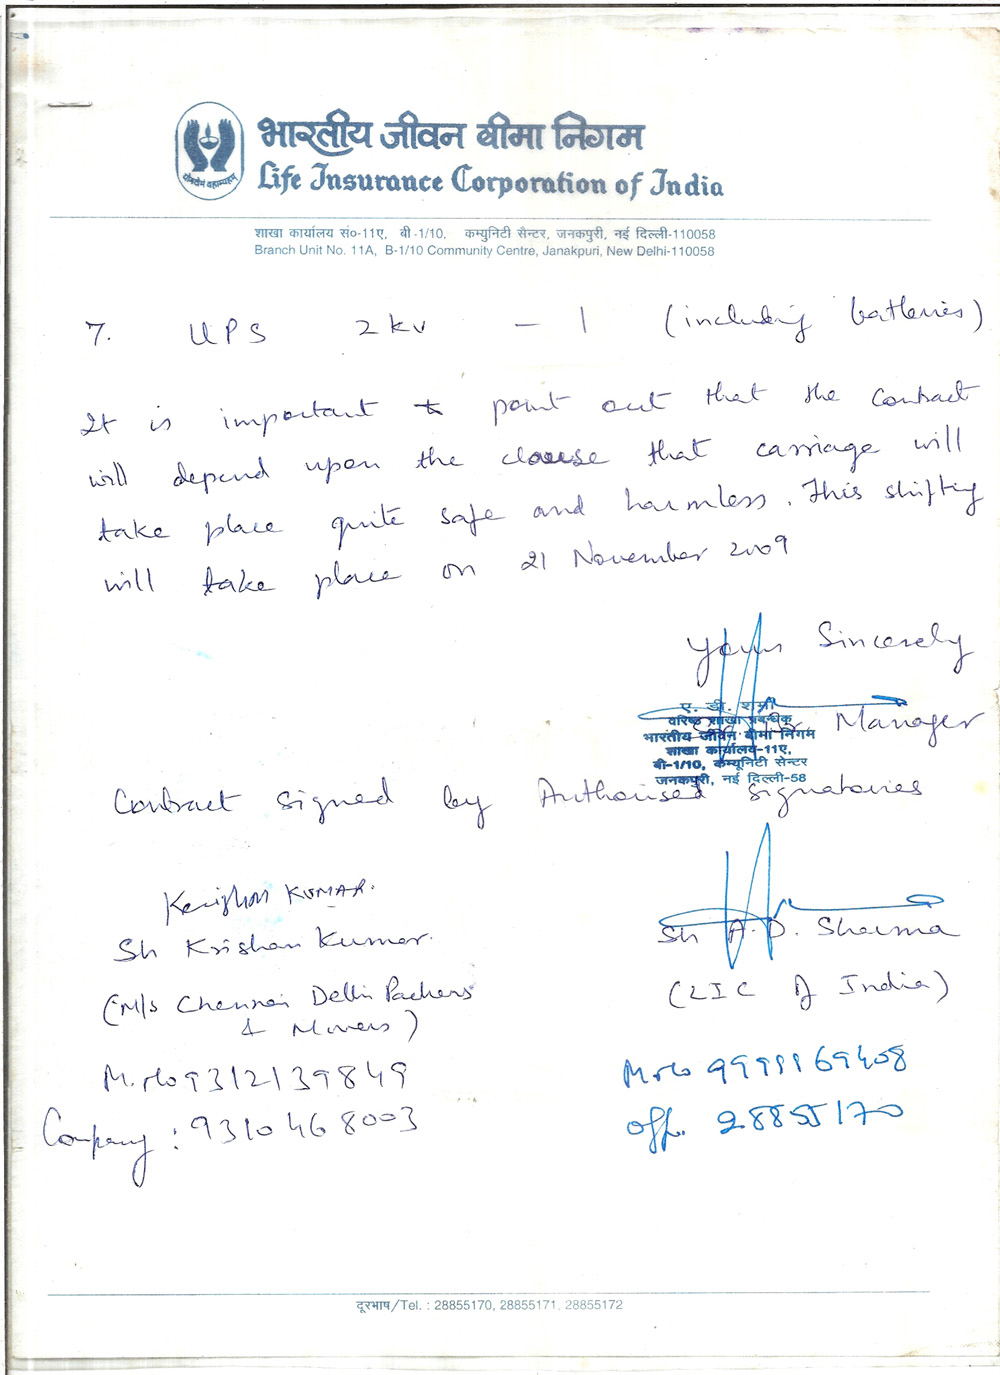 भारतीय जीवन बीमा निगम
Life Insurance Corporation of India
योगक्षेमं वहाम्यहम्
शाखा कार्यालय सं०-11ए, बी-1/10, कम्युनिटी सैन्टर, जनकपुरी, नई दिल्ली-110058
Branch Unit No. 11A, B-1/10 Community Centre, Janakpuri, New Delhi-110058
7. UPS 2kv - 1 (including batteries)
It is important to point out that the contract
will depend upon the clause that carriage will
take place quite safe and harmless. This shifting
will take place on 21 November 2009
Yours Sincerely
ए. डी. शर्मा
वरिष्ठ शाखा प्रबन्धक
Manager
भारतीय जीवन बीमा निगम
शाखा कार्यालय-11ए,
बी-1/10, कम्यूनिटी सेन्टर
जनकपुरी, नई दिल्ली-58
Contract signed by Authorised Signatories
Krishan KUMAR.
Sh Krishan Kumar.
Sh A.D. Sharma
(M/s Chennai Delhi Packers
& Movers)
(LIC of India)
M.No 9312139849
M.No 9999169408
Company : 9310468003
Off. 28855170
दूरभाष/Tel. : 28855170, 28855171, 28855172